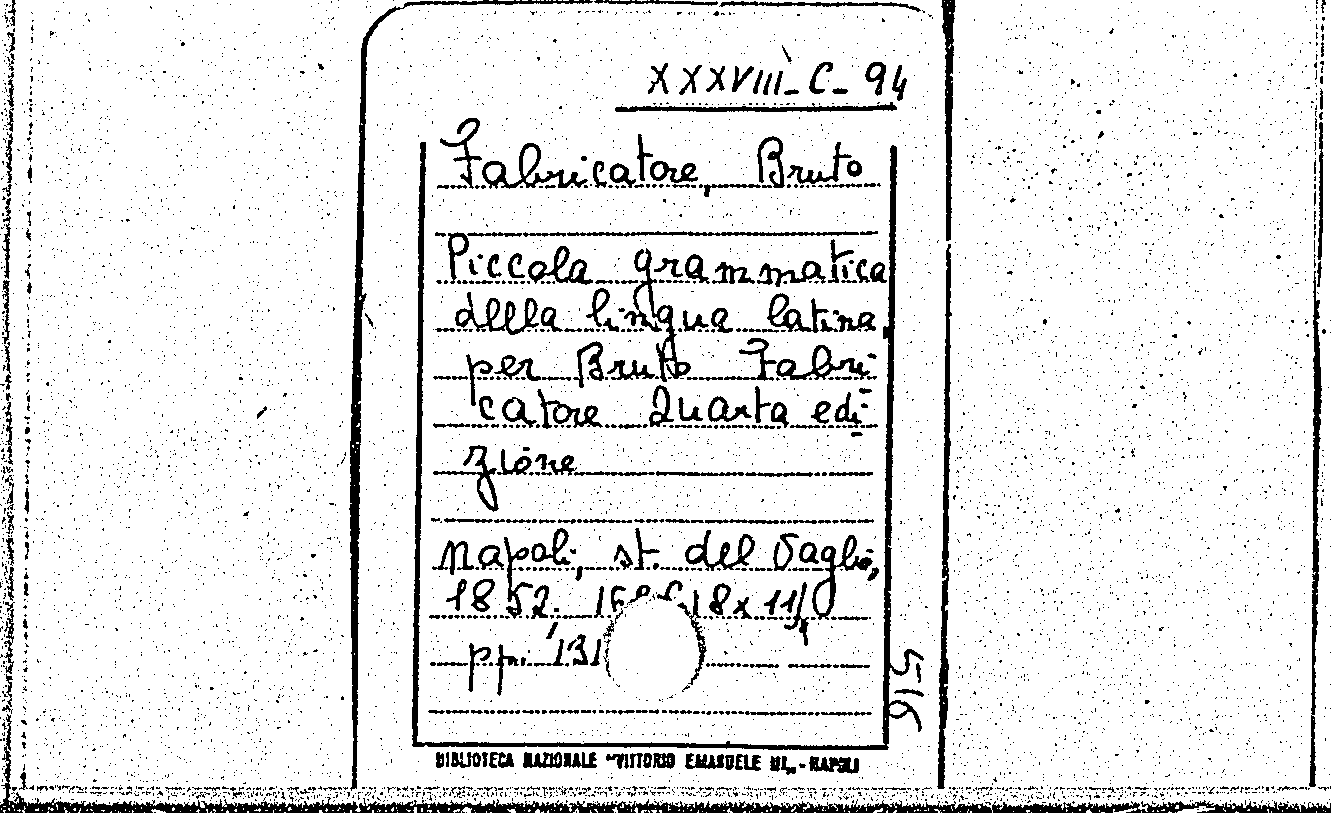 XXXVIII-C-94
Fabricatore, Bruto
Piccola grammatica
della lingua latina,
per Bruto Fabri-
catore Quarta edi-
zione
Napoli, st. del Vaglio,
1852. 18x11
pp. 131
516
BIBLIOTECA NAZIONALE "VITTORIO EMANUELE III„ - NAPOLI